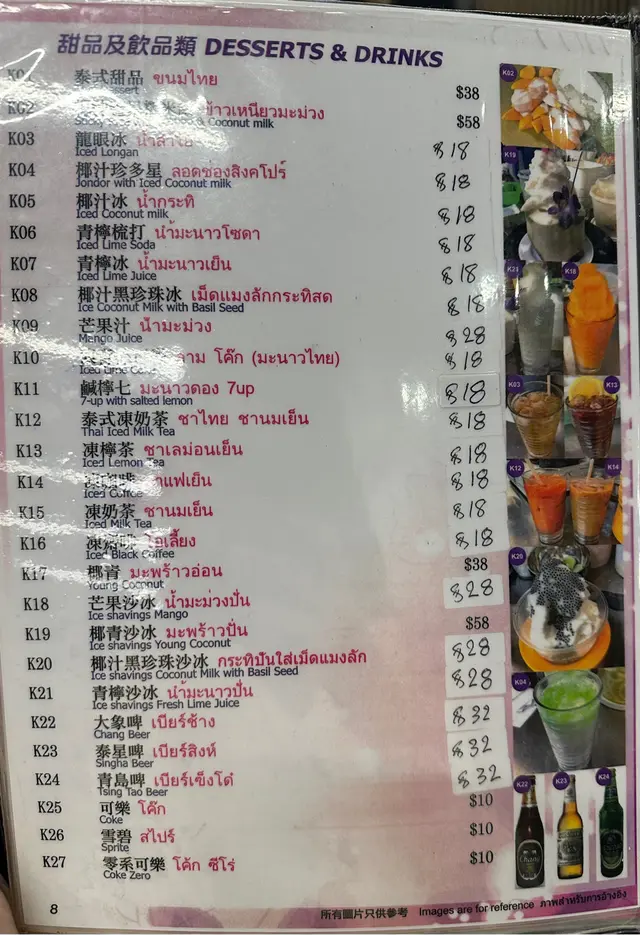 甜品及飲品類 DESSERTS & DRINKS
K01 泰式甜品 ขนมไทย $38
K02 ข้าวเหนียวมะม่วง $58
Coconut milk
K03 龍眼冰 น้ำลำไย $18
Iced Longan
K04 椰汁珍多星 ลอดช่องสิงคโปร์ $18
Jondor with Iced Coconut milk
K05 椰汁冰 น้ำกระทิ $18
Iced Coconut milk
K06 青檸梳打 น้ำมะนาวโซดา $18
Iced Lime Soda
K07 青檸冰 น้ำมะนาวเย็น $18
Iced Lime Juice
K08 椰汁黑珍珠冰 เม็ดแมงลักกระทิสด $18
Ice Coconut Milk with Basil Seed
K09 芒果汁 น้ำมะม่วง $28
Mango Juice
K10 โค๊ก (มะนาวไทย) $18
Iced Lime Coke
K11 鹹檸七 มะนาวดอง 7up $18
7-up with salted lemon
K12 泰式凍奶茶 ชาไทย ชานมเย็น $18
Thai Iced Milk Tea
K13 凍檸茶 ชาเลม่อนเย็น $18
Iced Lemon Tea
K14 กาแฟเย็น $18
Iced Coffee
K15 凍奶茶 ชานมเย็น $18
Iced Milk Tea
K16 โอเลี้ยง $18
Iced Black Coffee
K17 椰青 มะพร้าวอ่อน $38
Young Coconut
K18 芒果沙冰 น้ำมะม่วงปั่น $28
Ice shavings Mango
K19 椰青沙冰 มะพร้าวปั่น $58
Ice shavings Young Coconut
K20 椰汁黑珍珠沙冰 กระทิปั่นใส่เม็ดแมงลัก $28
Ice shavings Coconut Milk with Basil Seed
K21 青檸沙冰 น้ำมะนาวปั่น $28
Ice shavings Fresh Lime Juice
K22 大象啤 เบียร์ช้าง $32
Chang Beer
K23 泰星啤 เบียร์สิงห์ $32
Singha Beer
K24 青島啤 เบียร์เซ็งโต๋ $32
Tsing Tao Beer
K25 可樂 โค๊ก $10
Coke
K26 雪碧 สไปร์ $10
Sprite
K27 零系可樂 โค้ก ซีโร่ $10
Coke Zero
K02
K19
K21 K18
K03 K13
K12 K14
K20
K04
K22 K23 K24
Chang
8 所有圖片只供參考 Images are for reference ภาพสำหรับการอ้างอิง